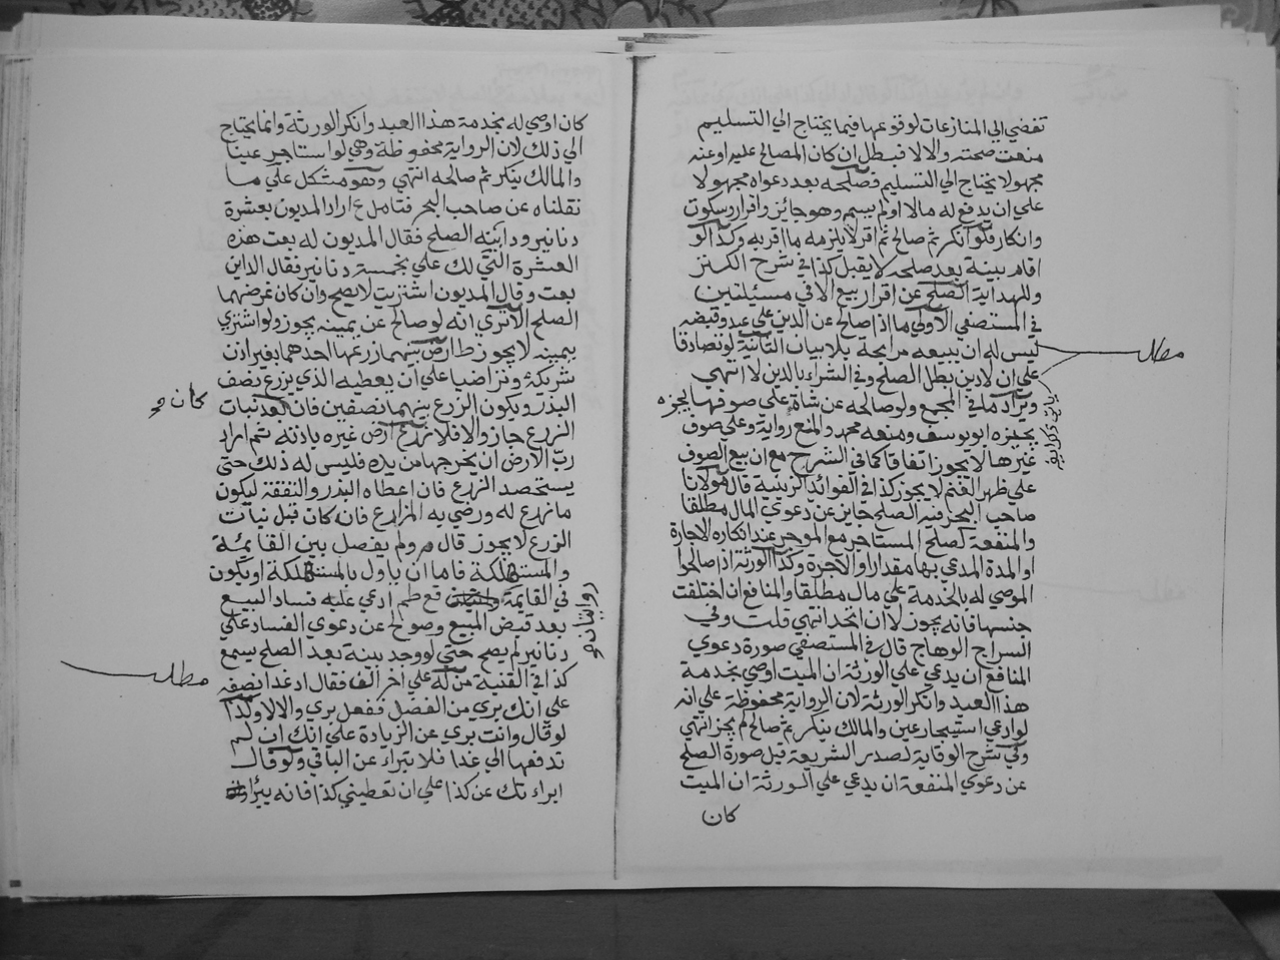 تفضي الي المنازعات لوقوعها فيما يحتاج الي التسليم
منعت صحته والا لا فبطل ان كان المصالح عليه او عنه
مجهولا يحتاج الي التسليم فصلحه بعد دعواه مجهولا
علي ان يدفع له مالا او لم يسم وهو جائز واقرار وسكوت
وانكار فلو انكر ثم صالح ثم اقر لا يلزمه ما اقر به وكذا لو
اقام بينة بعد صلحه لا يقبل كذا في شرح الكنز
وللهداية الصلح عن اقرار بيع الا في مسئلتين
في المستصفي الاولي ما اذا صالح عن الدين علي عبد وقبضه
ليس له ان يبيعه مرابحة بلا بيان الثانية لو تصادقا
علي ان لا دين بطل الصلح وفي الشراء بالدين لا انتهي
ويزاد ما في المجمع ولو صالحه عن شاة علي صوفها يجزه
يجيزه ابو يوسف ومنعه محمد والمنع رواية وعلي صوف
غيرها لا يجوز اتفاقا كما في الشرح مع ان بيع الصوف
علي ظهر الغنم لا يجوز كذا في الفوائد الزينية قال مولانا
صاحب البحر فيه الصلح جايز عن دعوي المال مطلقا
والمنفعة كصلح المستاجر مع الموجر عند انكاره الاجارة
او المدة المدعي بها مقدارا والاجرة وكذا الورثة اذا صالحوا
الموصي له بالخدمة علي مال مطلقا والمنافع ان اختلفت
جنسها فانه يجوز لا ان اتحد انتهي قلت وفي
السراج الوهاج قال في المستصفي صورة دعوي
المنافع ان يدعي علي الورثة ان الميت اوصي بخدمة
هذا العبد وانكر الورثة لان الرواية محفوظة علي انه
لو ادعي استيجار عين والمالك ينكر ثم صالح لم يجز انتهي
وفي شرح الوقاية لصدر الشريعة قيل صورة الصلح
عن دعوي المنفعة ان يدعي علي الورثة ان الميت
كان
مطلب
كان اوصي له بخدمة هذا العبد وانكر الورثة وانما يحتاج
الي ذلك لان الرواية محفوظة وهي لو استاجر عينا
والمالك ينكر ثم صالحه انتهي وهو مشكل علي ما
نقلناه عن صاحب البحر فتامل ع اراد المديون بعشرة
دنانير ودائنه الصلح فقال المديون له بعت هذه
العشرة التي لك علي بخمسة دنانير فقال الداين
بعت وقال المديون اشتريت لا يصح وان كان غرضهما
الصلح الا تري انه لو صالح عن يمينه يجوز ولو اشتري
يمينه لا يجوز ط ارض بينهما زرعها احدهما بغير اذن
شريكه وتراضيا علي ان يعطيه الذي يزرع نصف
البذر ويكون الزرع بينهما نصفين فان بعد نبات
الزرع جاز والا فلا زرع ارض غيره باذنه ثم اراد
رب الارض ان يخرجها من يده فليس له ذلك حتي
يستحصد الزرع فان اعطاه البذر والنفقة ليكون
ما زرع له ورضي به المزارع فان كان قبل نبات
الزرع لا يجوز قال م ولم يفصل بين القايمة
والمستهلكة فاما ان ياول بالمستهلكة او يكون
في القايمة قع طم ادعي عليه فساد البيع
بعد قبض المبيع وصولح عن دعوي الفساد علي
دنانير لم يصح حتي لو وجد بينة بعد الصلح يسمع
كذا في القنية من له علي اخر الف فقال اد غدا نصفه
علي انك بري من الفضل ففعل بري والا لا وكذا
لو قال وانت بري عن الزيادة علي انك ان لم
تدفعها الي غدا فلا تبراء عن الباقي ولو قال
ابراءتك عن كذا علي ان تعطيني كذا فانه يبراء
كان
روايتان
مطلب